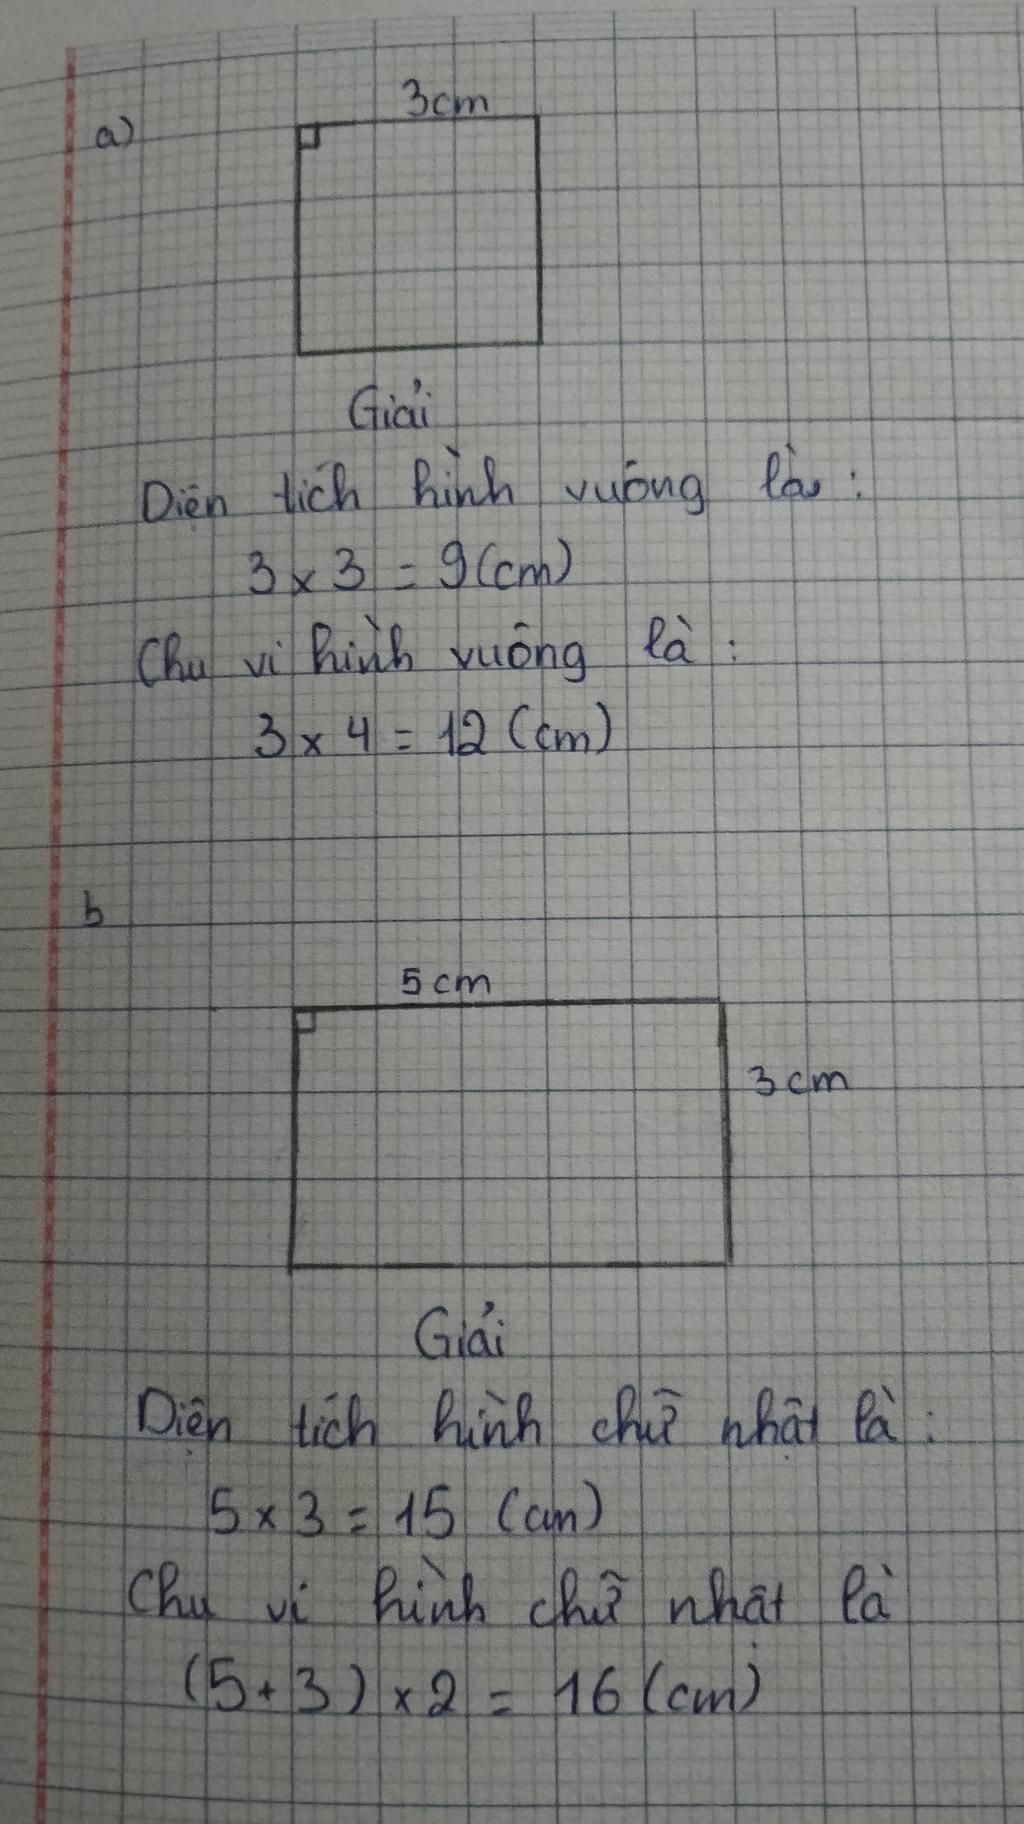 a)
3cm
Giải
Diện tích hình vuông là:
3 x 3 = 9 (cm)
Chu vi hình vuông là:
3 x 4 = 12 (cm)
b
5 cm
3 cm
Giải
Diện tích hình chữ nhật là:
5 x 3 = 15 (cm)
Chu vi hình chữ nhật là
(5 + 3) x 2 = 16 (cm)